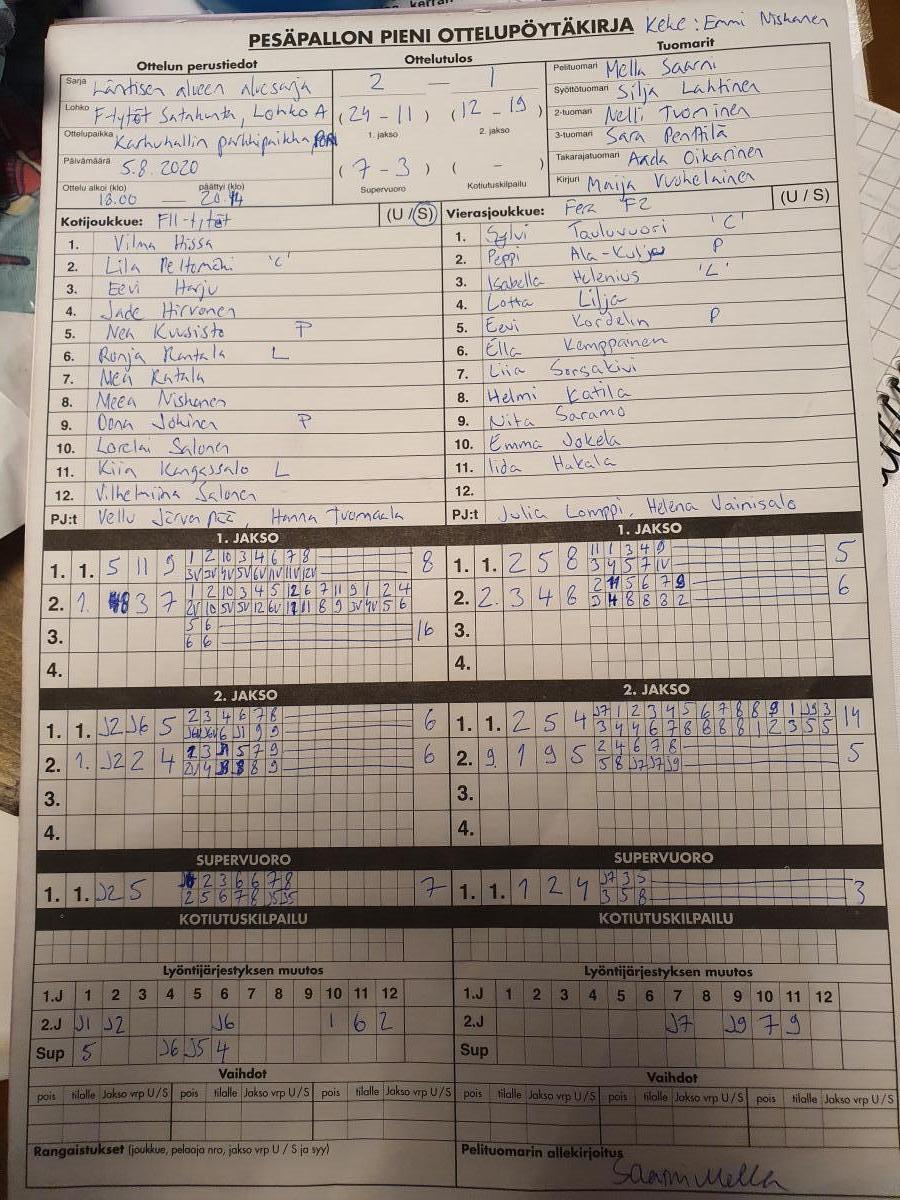 PESÄPALLON PIENI OTTELUPÖYTÄKIRJA Keke: Emmi Niskanen
Ottelun perustiedot
Ottelutulos
Tuomarit
Sarja Läntisen alueen aluesarja
Lohko F-tytöt Satakunta, Lohko A
Ottelupaikka Karhuhallin parkkipaikka
Päivämäärä 5.8.2020
Ottelu alkoi (klo) päättyi (klo)
18.00 —
2 — 1
(24 - 11) (12 - 19)
1. jakso 2. jakso
(7 - 3) ( - )
Supervuoro Kotiutuskilpailu
Pelituomari Mella Saarni
Syöttötuomari Silja Lahtinen
2-tuomari Nelli Tuominen
3-tuomari Sara Penttilä
Takarajatuomari Aada Oikarinen
Kirjuri Maija Vuohelainen
Kotijoukkue: FII-tytöt (U / S)
1. Vilma Hissa
2. Lila Peltomäki 'C'
3. Eevi Harju
4. Jade Hirvonen
5. Nea Kuusisto P
6. Ronja Rantala L
7. Nea Ratala
8. Meea Niskanen
9. Oona Jokinen P
10. Lorelai Salonen
11. Kiia Kangassalo L
12. Vilhelmiina Salonen
PJ:t Vellu Järvenpää, Hanna Tuomaala
Vierasjoukkue: Fera F2 (U / S)
1. Sylvi Tauluvuori 'C'
2. Peppi P
3. Isabella Helenius 'L'
4. Lotta Lilja
5. Eevi Kordelin P
6. Ella Kemppainen
7. Liia Sorsakivi
8. Helmi Katila
9. Nita Saramo
10. Emma Jokela
11. Iida Hakala
12.
PJ:t Julia Lomppi, Helena Vainisalo
1. JAKSO
1. 1. 5 11 9 1 2 10 3 4 6 7 8 8
2. 1. 3 7
3. 5 6 16
6 6
4.
1. JAKSO
1. 1. 2 5 8 5
2. 2. 3 4 8 6
3.
4.
2. JAKSO
1. 1. J2 J6 5 2 3 4 6 7 8 6
2. 1. J2 2 4 6
3.
4.
2. JAKSO
1. 1. 2 5 4 J7 1 2 3 4 5 6 7 8 8 9 1 J9 3 14
3 4 4 6 7 8 8 8 8 1 2 3 5 5
2. 9. 1 9 5 2 4 6 7 8 5
5 8 J7 J7 J9
3.
4.
SUPERVUORO
1. 1. J2 5 2 3 6 6 7 8 7
2 5 6 7 8 J5 J5
SUPERVUORO
1. 1. 1 2 4 J7 3 5 3
3 5 8
KOTIUTUSKILPAILU
KOTIUTUSKILPAILU
Lyöntijärjestyksen muutos
1.J 1 2 3 4 5 6 7 8 9 10 11 12
2.J J1 J2 J6 1 6 2
Sup 5 J6 J5 4
Lyöntijärjestyksen muutos
1.J 1 2 3 4 5 6 7 8 9 10 11 12
2.J J7 J9 7 9
Sup
Vaihdot
pois tilalle Jakso vrp U / S pois tilalle Jakso vrp U / S pois tilalle Jakso vrp U / S
Vaihdot
pois tilalle Jakso vrp U / S pois tilalle Jakso vrp U / S pois tilalle Jakso vrp U / S
Rangaistukset (joukkue, pelaaja nro, jakso vrp U / S ja syy)
Pelituomarin allekirjoitus
Saarni Mella